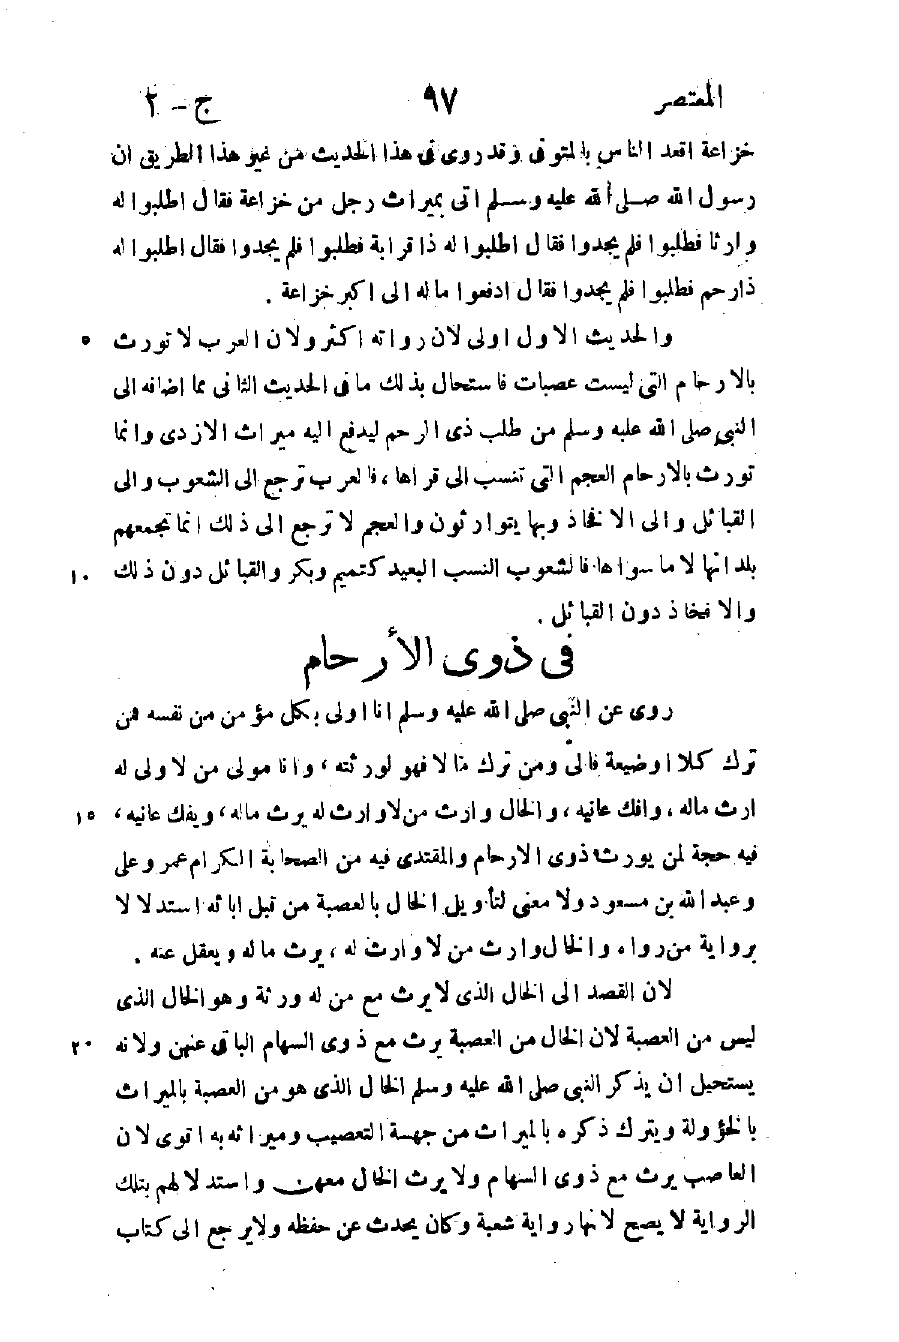 المعتصر ٩٧ ج - ٢
خزاعة اقعد الناس بالمتوفى وقد روى فى هذا الحديث من غير هذا الطريق ان
رسول الله صلى الله عليه وسلم اتى بميراث رجل من خزاعة فقال اطلبوا له
وارثا فطلبوا فلم يجدوا فقال اطلبوا له ذا قرابة فطلبوا فلم يجدوا فقال اطلبوا له
ذا رحم فطلبوا فلم يجدوا فقال ادفعوا ماله الى اكبر خزاعة .
والحديث الاول اولى لان رواته اكثر ولان العرب لا تورث ٥
بالارحام التى ليست عصبات فاستحال بذلك ما فى الحديث الثانى مما اضافه الى
النبى صلى الله عليه وسلم من طلب ذى الرحم ليدفع اليه ميراث الازدى وانما
تورث بالارحام العجم التى تنسب الى قراها ، فالعرب ترجع الى الشعوب والى
القبائل والى الافخاذ وبها يتوارثون والعجم لا ترجع الى ذلك انما تجمعهم
بلدانها لا ما سواها فالشعوب النسب البعيد كتميم وبكر والقبائل دون ذلك ١٠
والافخاذ دون القبائل .
فى ذوى الأرحام
روى عن النبى صلى الله عليه وسلم انا اولى بكل مؤمن من نفسه فمن
ترك كلا او ضيعة فالى ومن ترك مالا فهو لورثته ، وانا مولى من لا ولى له
ارث ماله ، وافك عانيه ، والخال وارث من لا وارث له يرث ماله ، ويفك عانيه ، ١٥
فيه حجة لمن يورث ذوى الارحام والمقتدى فيه من الصحابة الكرام عمر وعلى
وعبد الله بن مسعود ولا معنى لتأويل الخال بالعصبة من قبل ابائه استدلالا
برواية من رواه والخال وارث من لا وارث له ، يرث ماله ويعقل عنه .
لان القصد الى الخال الذى لا يرث مع من له ورثة وهو الخال الذى
ليس من العصبة لان الخال من العصبة يرث مع ذوى السهام الباقى عنهن ولانه ٢٠
يستحيل ان يذكر النبى صلى الله عليه وسلم الخال الذى هو من العصبة بالميراث
بالخؤولة ويترك ذكره بالميراث من جهة التعصيب وميراثه به اقوى لان
العاصب يرث مع ذوى السهام ولا يرث الخال معهن واستدلالهم بتلك
الرواية لا يصح لانها رواية شعبة وكان يحدث عن حفظه ولا يرجع الى كتاب